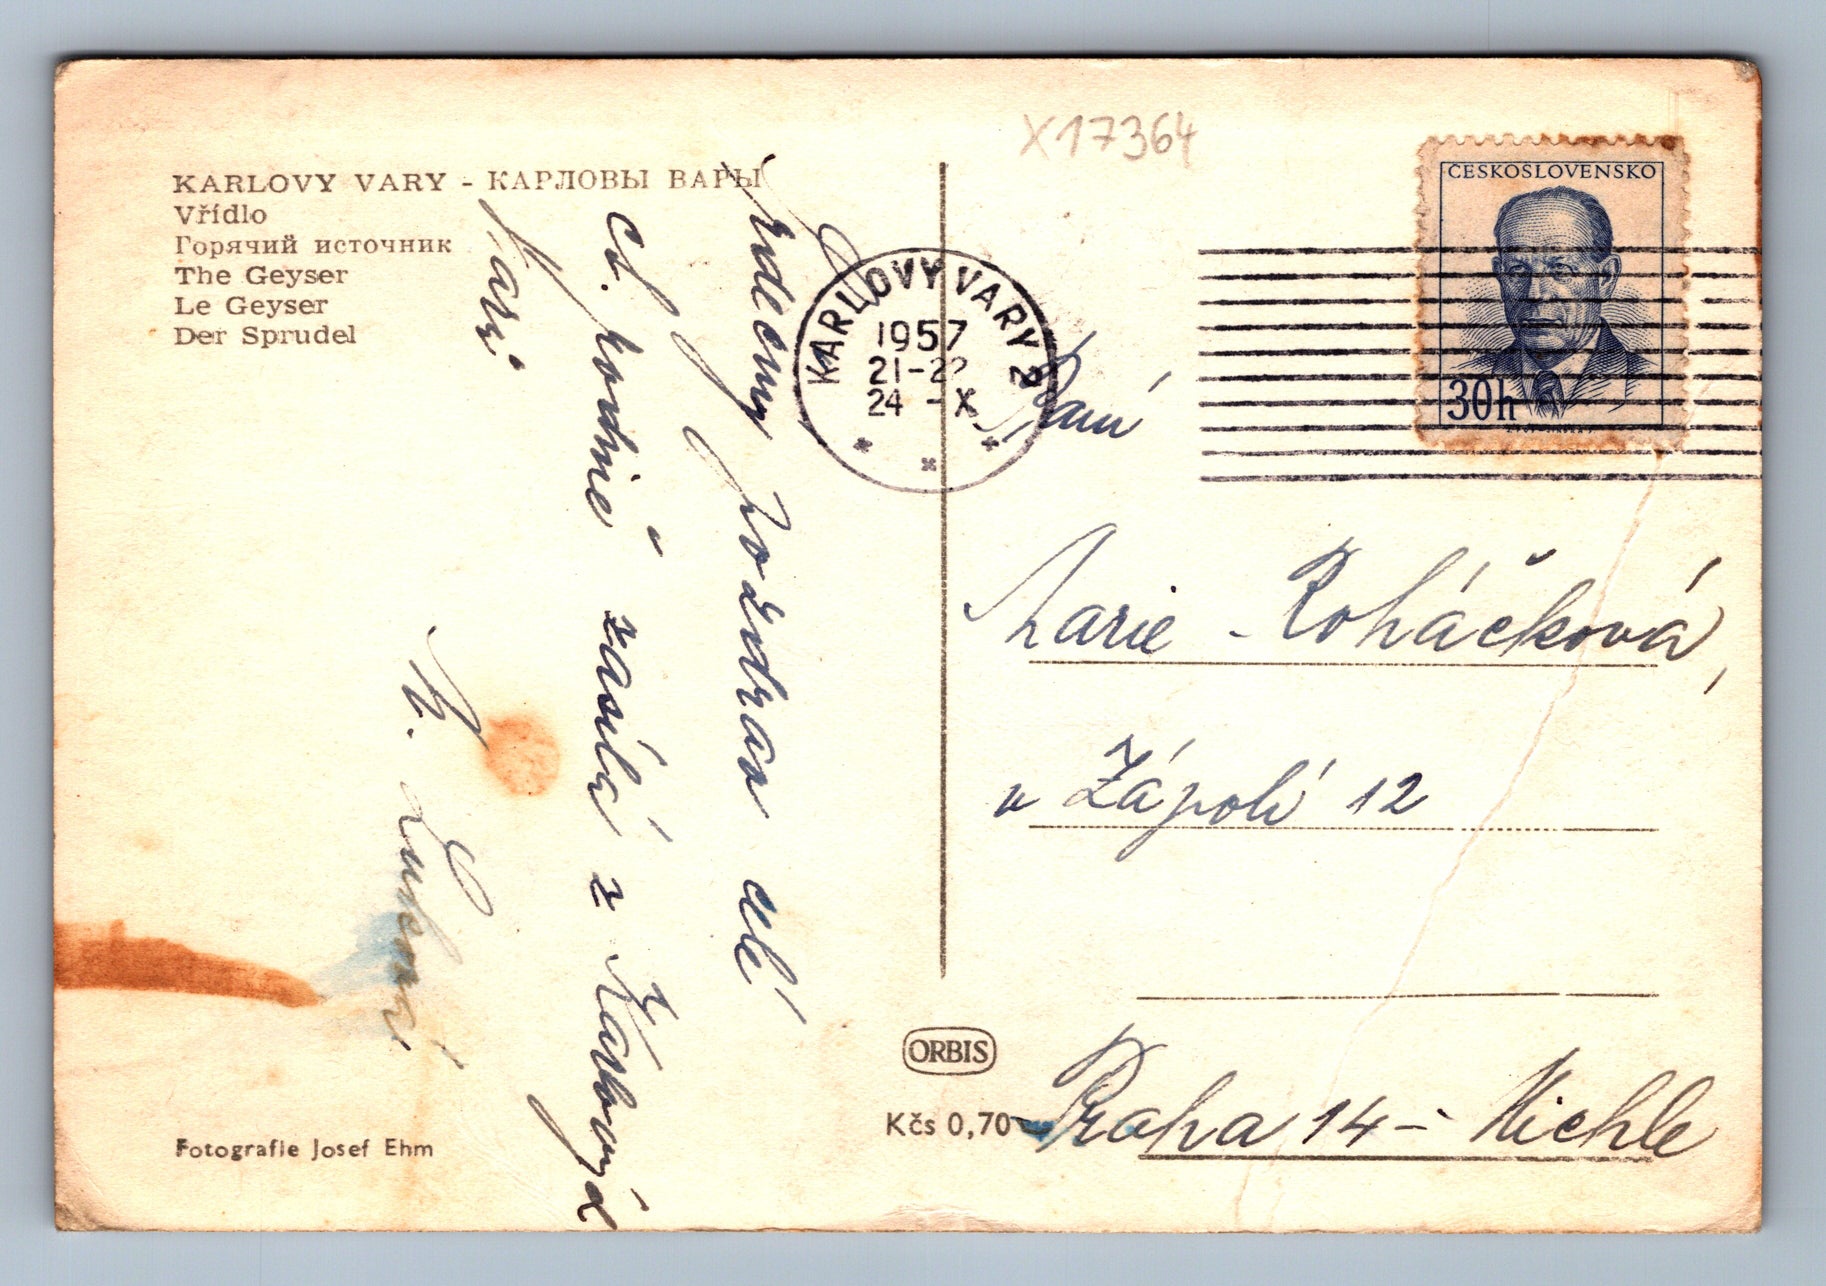 X17364
KARLOVY VARY - КАРЛОВЫ ВАРЫ
Vřídlo
Горячий источник
The Geyser
Le Geyser
Der Sprudel
Srdečný pozdrav celé
ct. rodině zasílá z Karlových
Varů.
V.
ČESKOSLOVENSKO
30h
KARLOVY VARY 2
1957
21-22
24 - X
Paní
Marie - Roháčková,
v Zápolí 12
Praha 14 - Michle
ORBIS
Kčs 0,70
Fotografie Josef Ehm